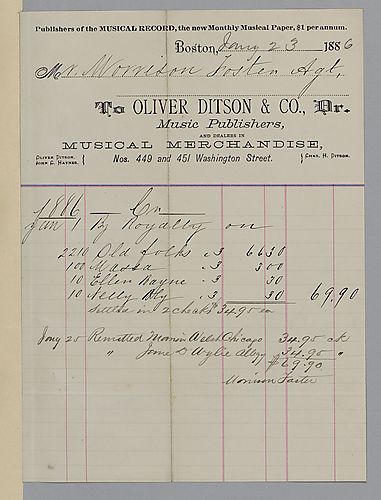 Publishers of the MUSICAL RECORD, the new Monthly Musical Paper, $1 per annum.
Boston, Jany 23 1886
Mr. Morrison Foster Agt,
To OLIVER DITSON & CO., Dr.
Music Publishers,
AND DEALERS IN
MUSICAL MERCHANDISE,
OLIVER DITSON.
JOHN C. HAYNES.
Nos. 449 and 451 Washington Street.
CHAS. H. DITSON.
1886 — Cr
Jan 1 By Royalty on
2210 Old folks .. 3 6630
100 Massa .. 3 300
10 Ellen Bayne .. 3 30
10 Nelly Bly .. 3 30 69.90
Settled in 2 checks 34.95 ea
Jany 25 Remitted Marion Welsh Chicago 34.95 ck
" Jane D Wylie Allegy 34.95 "
$69.90
Morrison Foster